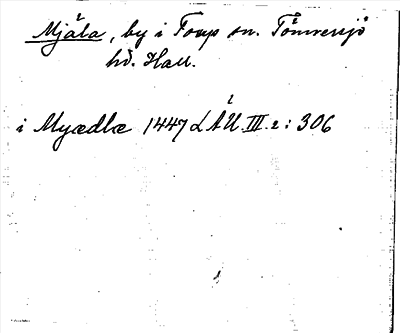 Mjäla, by i Torup sn. Tönnersjö
hd. Hall.
i Myædlæ 1447 LÄU. III. 2: 306